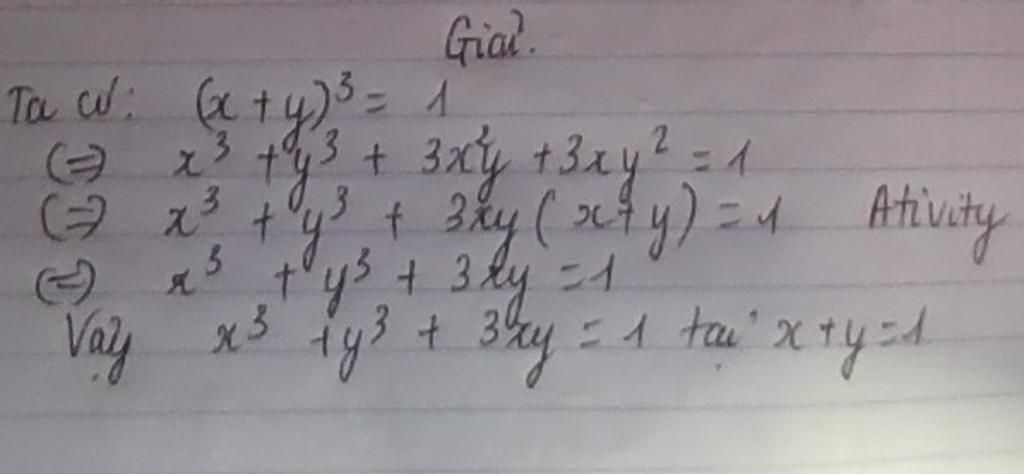 Giải.
Ta có: (x + y)³ = 1
(=) x³ + y³ + 3x²y + 3xy² = 1
(=) x³ + y³ + 3xy(x + y) = 1 Ativity
(=) x³ + y³ + 3xy = 1
Vậy x³ + y³ + 3xy = 1 tại x + y = 1